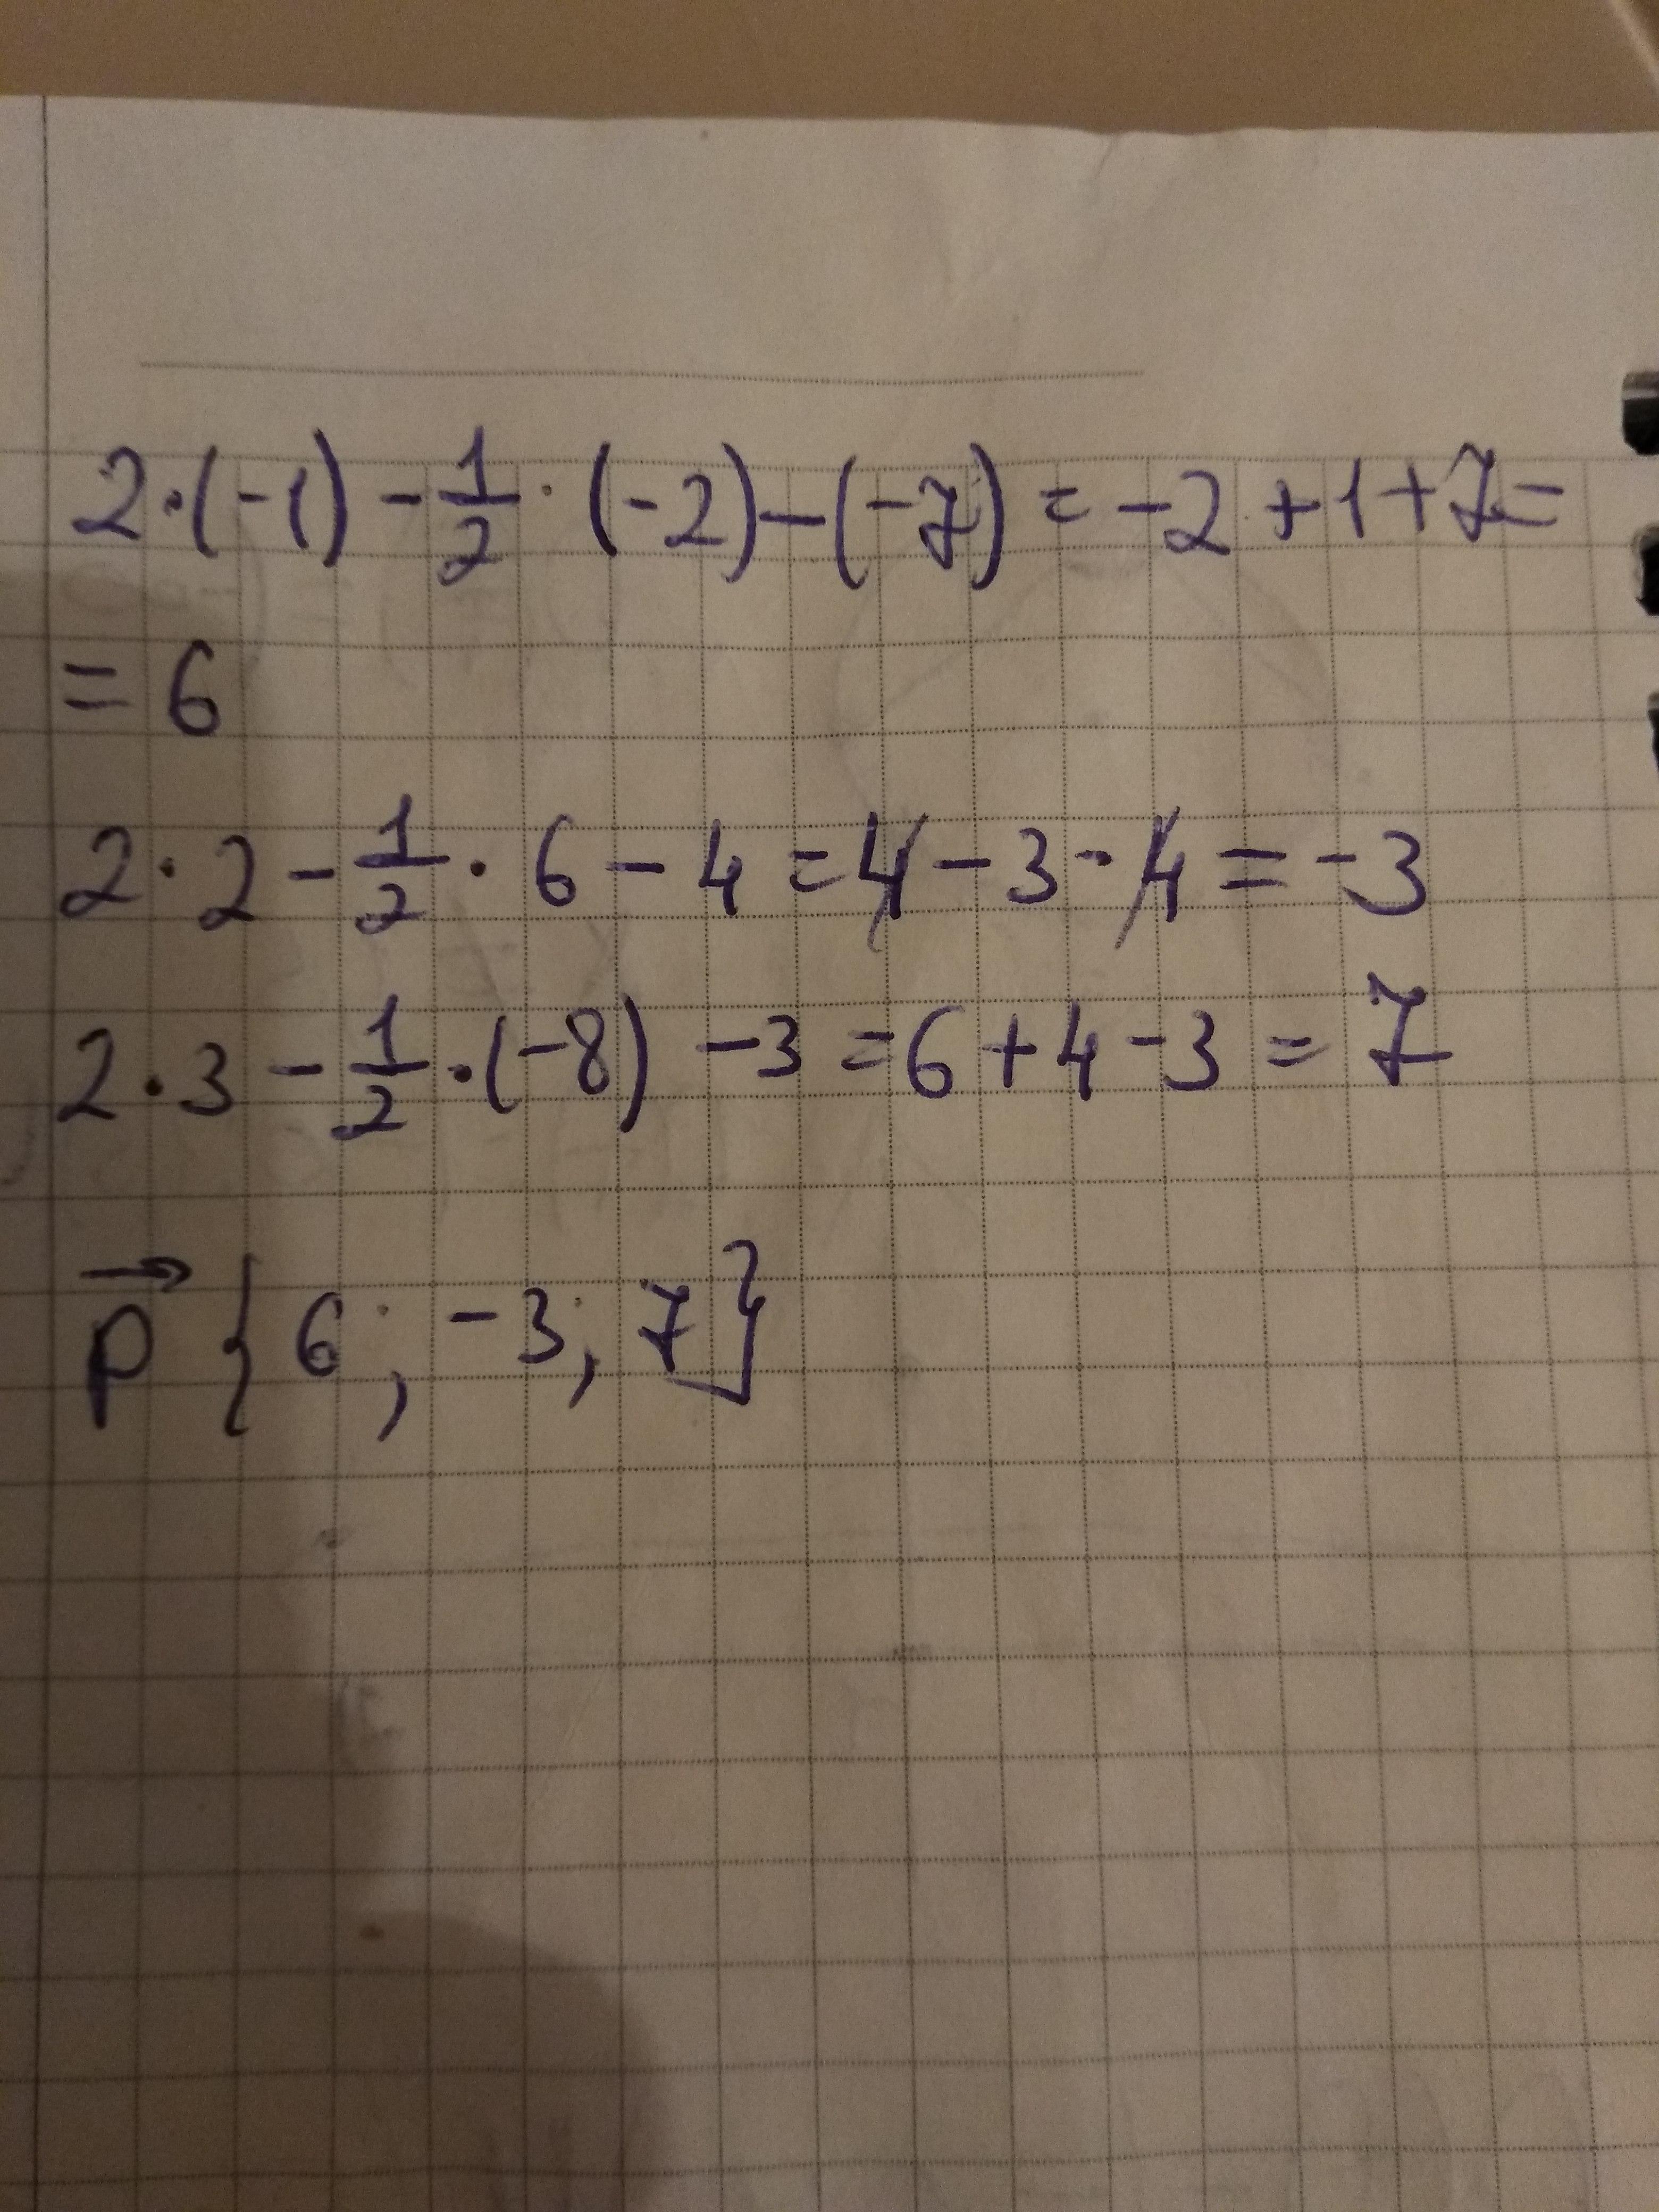 2·(-1) - 1/2 · (-2) - (-7) = -2 + 1 + 7 =
= 6
2 · 2 - 1/2 · 6 - 4 = 4 - 3 - 4 = -3
2 · 3 - 1/2 · (-8) - 3 = 6 + 4 - 3 = 7
p⃗ {6; -3; 7}